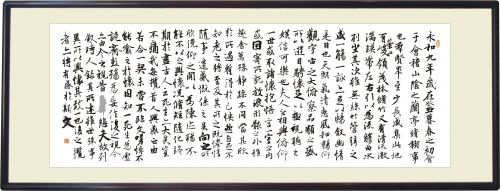 永和九年歲在癸丑暮春之初會
于會稽山陰之蘭亭脩禊事
也群賢畢至少長咸集此地
有崇山峻領茂林脩竹又有清流激
湍暎帶左右引以為流觴曲水
列坐其次雖無絲竹管弦之
盛一觴一詠亦足以暢敘幽情
是日也天朗氣清惠風和暢仰
觀宇宙之大俯察品類之盛
所以遊目騁懷足以極視聽之
娛信可樂也夫人之相與俯仰
一世或取諸懷抱悟言一室之內
或因寄所託放浪形骸之外雖
趣舍萬殊靜躁不同當其欣
於所遇暫得於己快然自足不
知老之將至及其所之既惓情
隨事遷感慨係之矣向之所
欣俛仰之間以為陳迹猶不
能不以之興懷況脩短隨化終
期於盡古人云死生亦大矣豈
不痛哉每攬昔人興感之由
若合一契未嘗不臨文嗟悼不
能喻之於懷固知一死生為虛
誕齊彭殤為妄作後之視今
亦由今之視昔悲夫故列
敘時人錄其所述雖世殊事
異所以興懷其致一也後之攬
者亦將有感於斯文